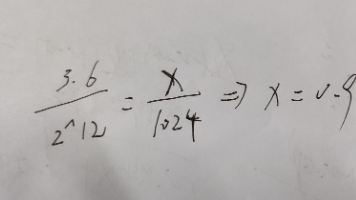 3.6/2^12 = x/1024 => x = 0.9